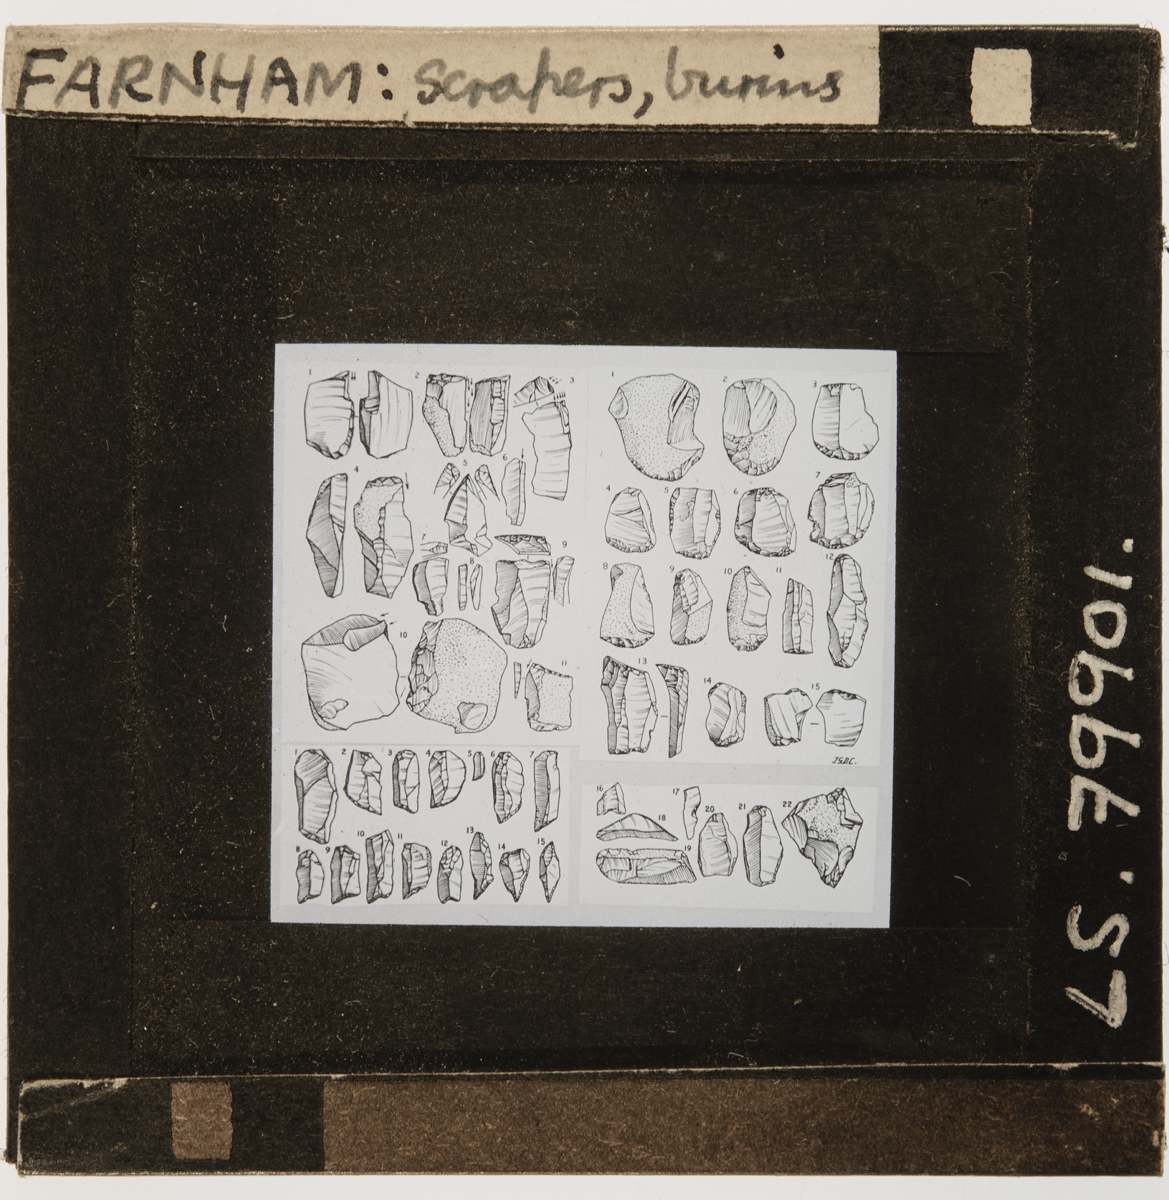 FARNHAM: scrapers, burins
LS. 79901.
1 2 3
4 5 6
7 8 9
10 11
1 2 3
4 5 6 7
8 9 10 11 12
13 14 15
J.G.D.C.
1 2 3 4 5 6 7
8 9 10 11 12 13 14 15
16 17 18 19 20 21 22